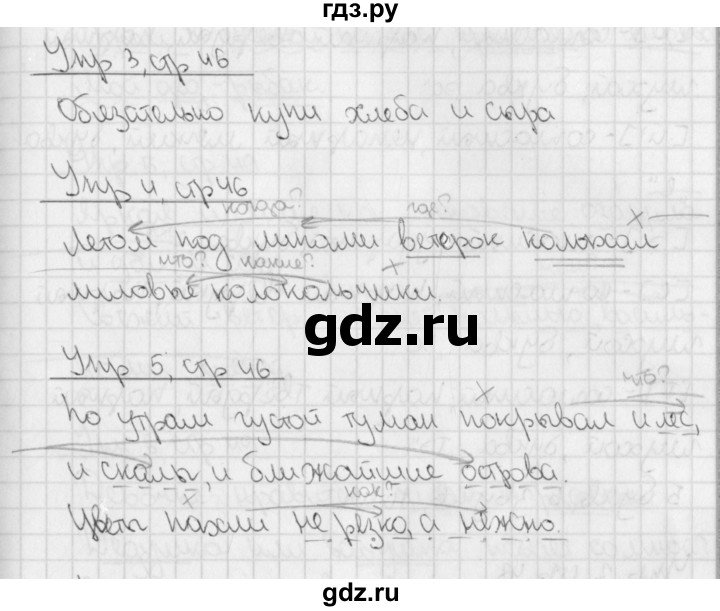 гдз.ру
Упр 3, стр 46
Обязательно купи хлеба и сыра
Упр 4, стр 46
когда? где? х
Летом под липами ветерок колыхал
что? какие? х
лиловые колокольчики.
gdz.ru
Упр 5, стр 46
х что?
По утрам густой туман покрывал и лес,
и скалы, и ближайшие острова.
х как?
Цветы пахли не резко, а нежно.
gdz.ru